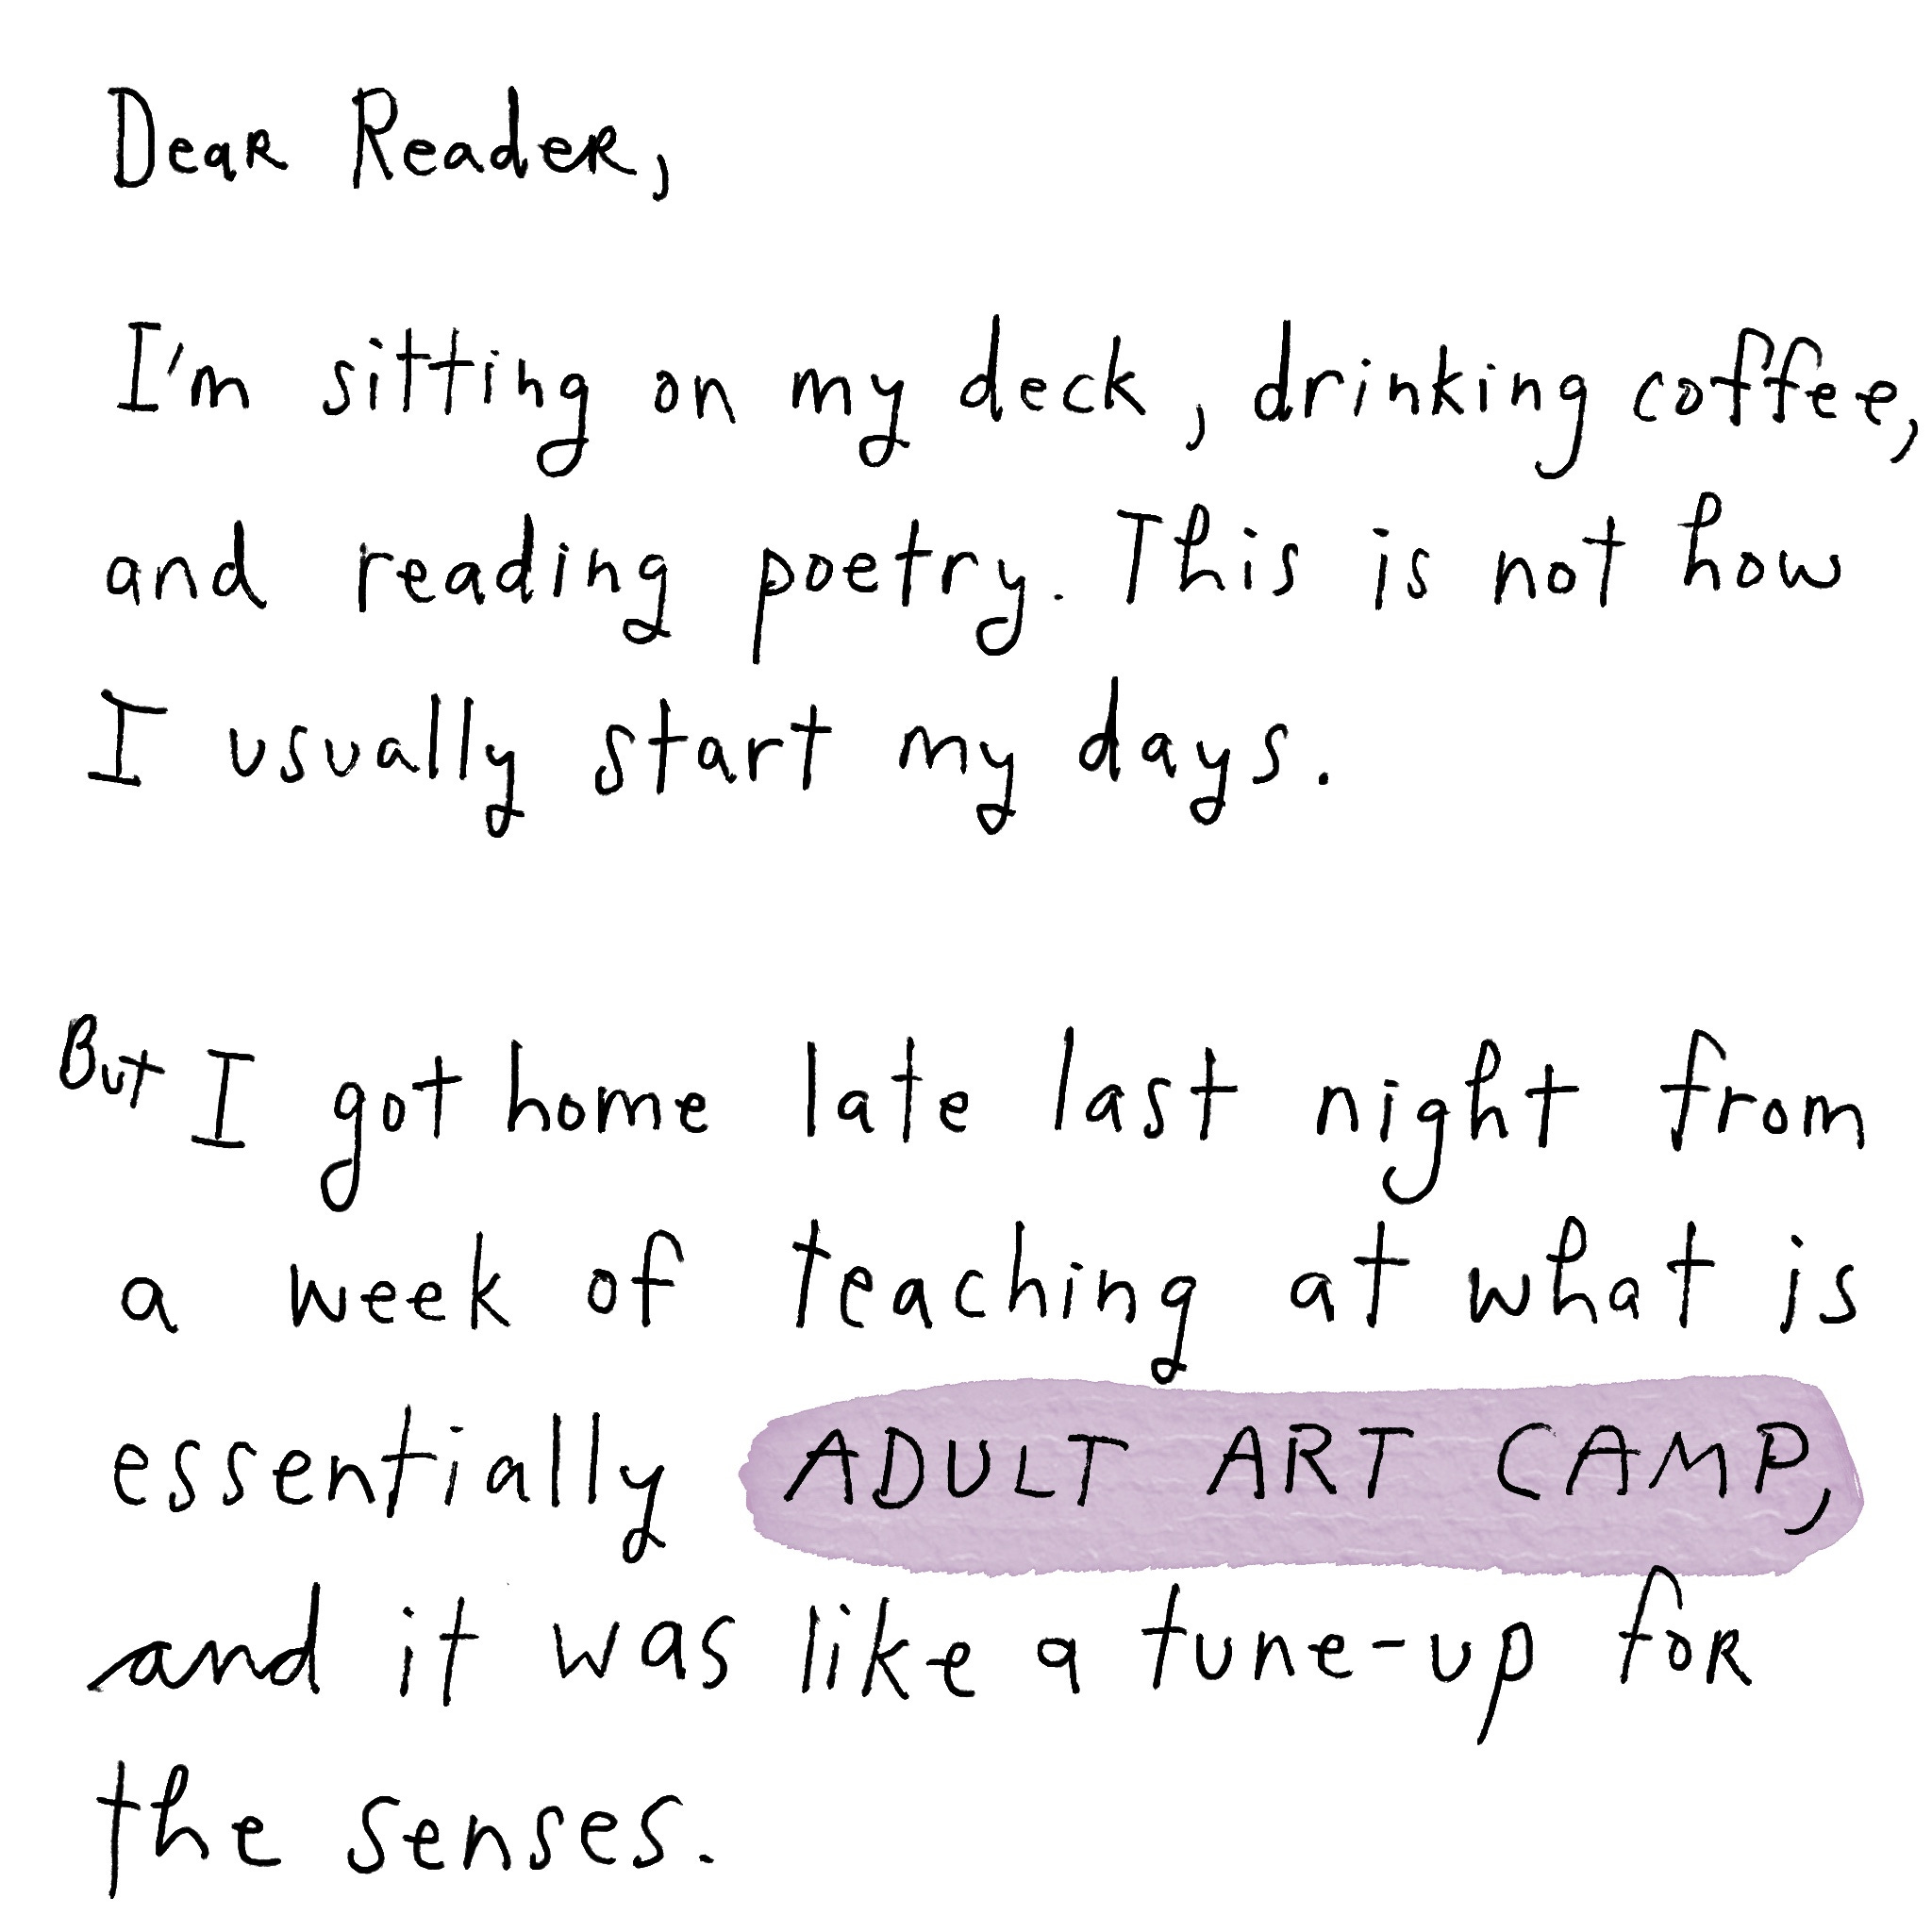 Dear Reader,
I'm sitting on my deck, drinking coffee,
and reading poetry. This is not how
I usually start my days.
But I got home late last night from
a week of teaching at what is
essentially ADULT ART CAMP,
and it was like a tune-up for
the senses.